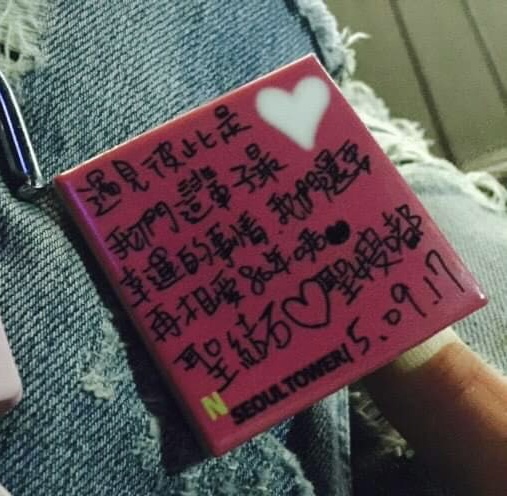 遇見彼此是
我們這輩子最
幸運的事情.我們還要
再相愛80年哦♥
聖結石♡聖嫂嘟
15.09.17
N SEOULTOWER